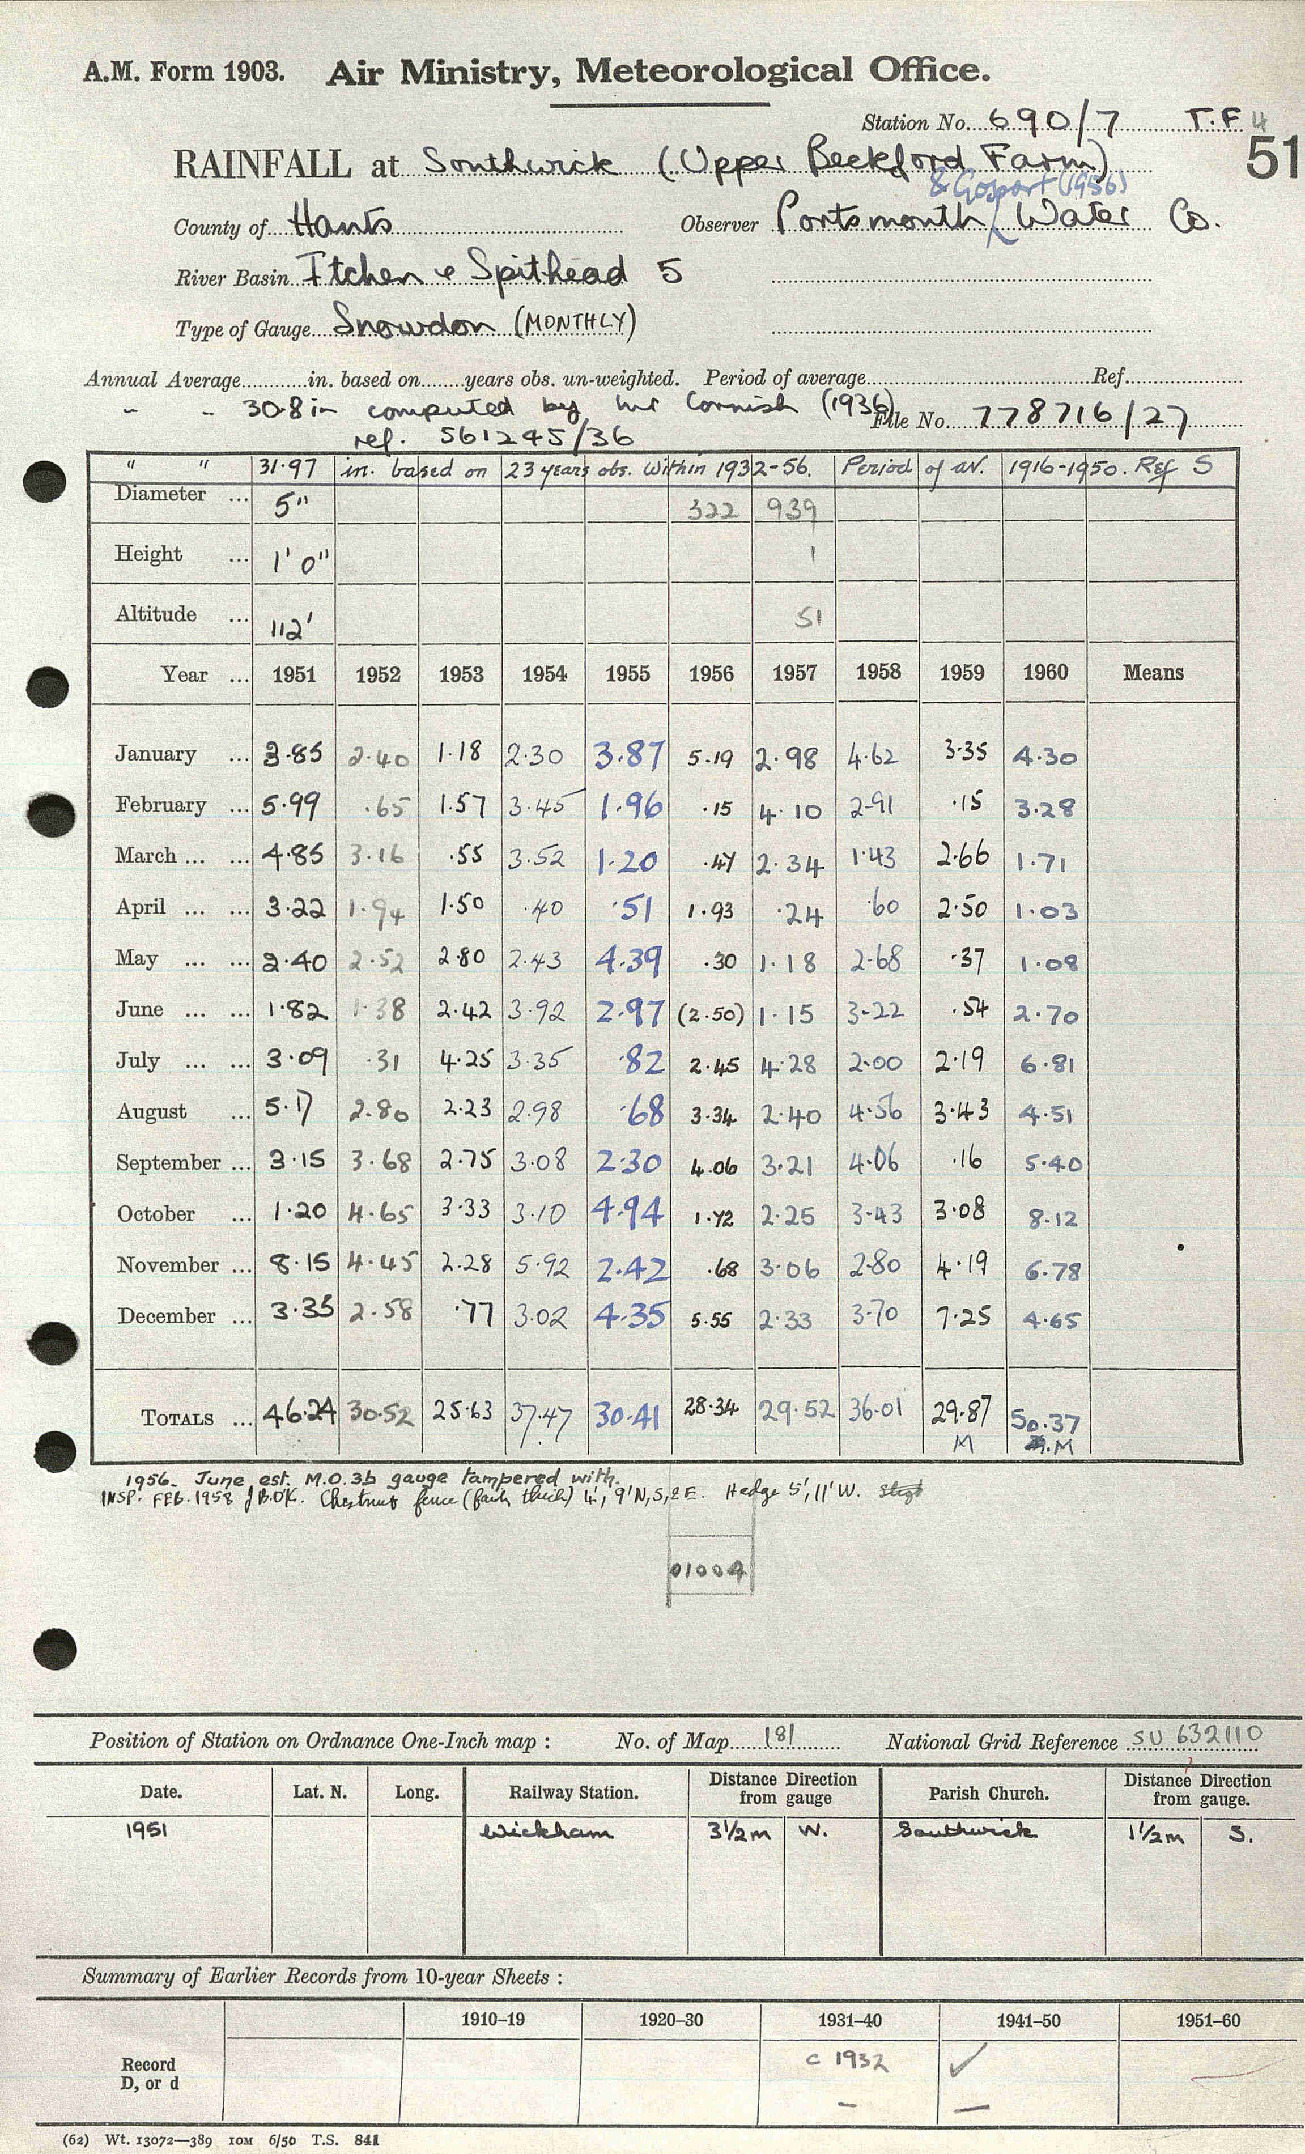 A.M. Form 1903. Air Ministry, Meteorological Office.
Station No. 690/7 T.F. 4
RAINFALL at Southwick (Upper Beckford Farm) 51
& Gosport (1956)
County of Hants Observer Portsmouth Water Co.
River Basin Itchen & Spithead 5
Type of Gauge Snowdon (MONTHLY)
Annual Average............in. based on........years obs. un-weighted. Period of average.................Ref.................
" " 30.8 in computed by Mr Cornish (1936) File No. 778716/27
ref. 561245/36
" " 31.97 in. based on 23 years obs. within 1932-56. Period of av. 1916-1950. Ref S
Diameter ... 5" 322 939
Height ... 1' 0" 1
Altitude ... 112' 51
Year ... 1951 1952 1953 1954 1955 1956 1957 1958 1959 1960 Means
January ... 3.85 2.40 1.18 2.30 3.87 5.19 2.98 4.62 3.35 4.30
February ... 5.99 .65 1.57 3.45 1.96 .15 4.10 2.91 .15 3.28
March ... ... 4.85 3.16 .55 3.52 1.20 .47 2.34 1.43 2.66 1.71
April ... ... 3.22 1.94 1.50 .40 .51 1.93 .24 .60 2.50 1.03
May ... ... 2.40 2.52 2.80 2.43 4.39 .30 1.18 2.68 .37 1.08
June ... ... 1.82 1.38 2.42 3.92 2.97 (2.50) 1.15 3.22 .54 2.70
July ... ... 3.09 .31 4.25 3.35 .82 2.45 4.28 2.00 2.19 6.81
August ... 5.17 2.80 2.23 2.98 .68 3.34 2.40 4.56 3.43 4.51
September ... 3.15 3.68 2.75 3.08 2.30 4.06 3.21 4.06 .16 5.40
October ... 1.20 4.65 3.33 3.10 4.94 1.72 2.25 3.43 3.08 8.12
November ... 8.15 4.45 2.28 5.92 2.42 .68 3.06 2.80 4.19 6.78
December ... 3.35 2.58 .77 3.02 4.35 5.55 2.33 3.70 7.25 4.65
TOTALS ... 46.24 30.52 25.63 37.47 30.41 28.34 29.52 36.01 29.87 50.37
M M
1956. June est. M.O.3b gauge tampered with.
INSP. FEB. 1958 J B.OK. Chestnut fence (fairly thick) 4', 9' N, S, & E. Hedge 5', 11' W.
01004
Position of Station on Ordnance One-Inch map : No. of Map 181 National Grid Reference SU 632110
Date. Lat. N. Long. Railway Station. Distance Direction from gauge Parish Church. Distance Direction from gauge.
1951 Wickham 3½m W. Southwick 1½m S.
Summary of Earlier Records from 10-year Sheets :
1910–19 1920–30 1931–40 1941–50 1951–60
Record c 1932 ✓
D, or d – –
(62) Wt. 13072—389 10M 6/50 T.S. 841